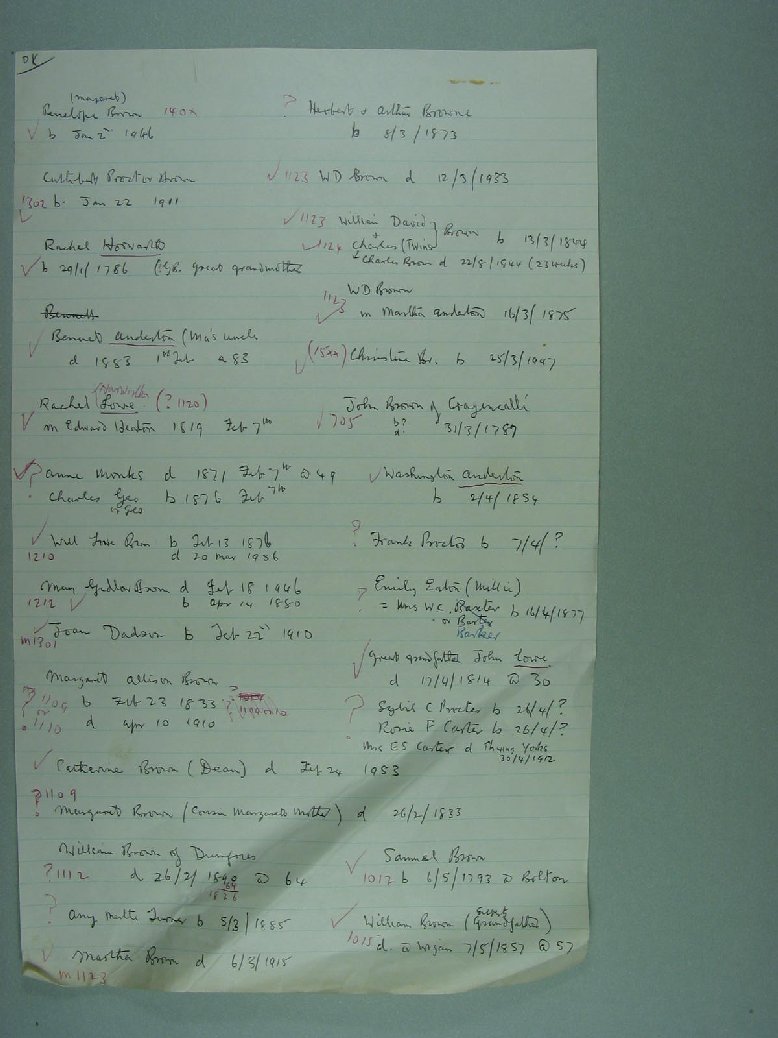 OK
(Margaret)
Penelope Brown 140x
b Jan 2nd 1946
Cuthbert Proctor Brown
1302 b. Jan 22 1911
Rachel Howarth
b 29/1/1786 (Gr. great grandmother
Bennett
Bennet Anderton (Ma's uncle
d 1883 1st Feb a 83
Rachel Lowe (? 1120)
m Edward Heaton 1819 Feb 7th
? Anne Monks d 1871 Feb 7th @ 49
Charles Geo b 1876 Feb 7th
or Geo
Will Lowe Brown b Feb 13 1876
1210 d 20 Mar 1956
Mary Brown d Feb 18 1946
1212 b Apr 14 1880
Joan Dadson b Feb 22nd 1910
m1301
Margaret Allison Brown
? 1109 b Feb 23 1833 ?
or
? 1110 d Apr 10 1910
Catherine Brown (Dean) d Feb 24 1953
? 1109
Margaret Brown (Cousin Margaret's Mother) d 26/2/1833
William Brown of
? 1112 d 26/2/1890 @ 64
64
1826
? Amy Turner b 5/3/1885
Martha Brown d 6/3/1915
m1123
? Herbert & Arthur Browne
b 8/3/1873
1123 WD Brown d 12/3/1933
1123 William David } Brown b 13/3/1844
+
1124 Charles (Twins
Charles Brown d 22/8/1844 (23 weeks)
WD Brown
1123 m Martha Anderton 16/3/1875
(1544) Christine Br. b 25/3/1947
John Brown of
705 b? 31/3/1789
d.
Washington Anderton
b 2/4/1854
? Frank Proctor b 7/4/?
? Emily (Millie)
= Mrs WC. Baxter b 16/4/1877
or Barter
Barker
Great grandfather John Lowe
d 17/4/1814 @ 30
? Sybil C Procter b 26/4/?
Rosie F Carter b 26/4/?
Mrs ES Carter d Yorks
30/4/1912
Samuel Brown
1012 b 6/5/1793 @ Bolton
William Brown (Great Grandfather)
1015 d. @ Wigan 7/5/1857 @ 57